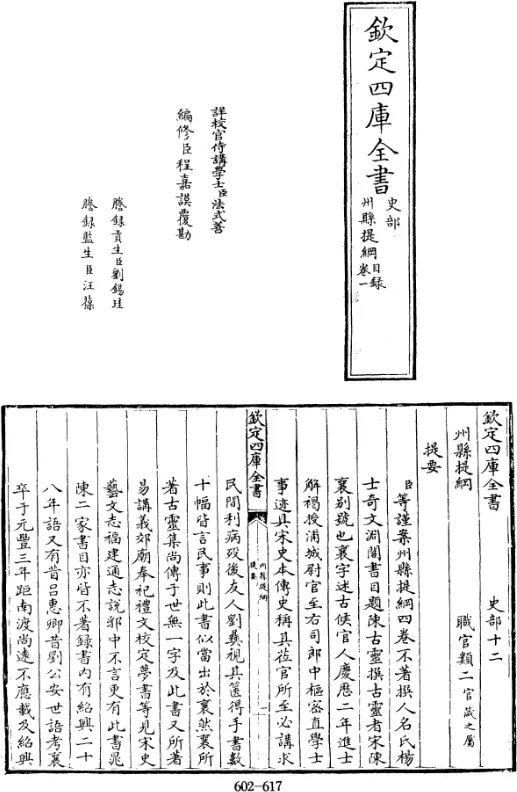 欽定四庫全書
史部
州縣提綱
目録
卷一
詳校官侍講學士臣法式善
編修臣程嘉謨覆勘
謄録貢生臣劉錫珪
謄録監生臣汪葆
欽定四庫全書
史部十二
州縣提綱
職官類二官箴之屬
提要
臣等謹案州縣提綱四卷不著撰人名氏楊
士奇文淵閣書目題陳古靈撰古靈者宋陳
襄别號也襄字述古侯官人慶厯二年進士
解褐授浦城尉官至右司郎中樞密直學士
事迹具宋史本傳史稱其莅官所至必講求
欽定四庫全書
州縣提綱
提要
一
民間利病殁後友人劉彞視其篋得手書數
十幅皆言民事則此書似當出於襄然襄所
著古靈集尚傳于世無一字及此書又所著
易講義郊廟奉祀禮文校定夢書等見宋史
藝文志福建通志説郛中不言更有此書晁
陳二家書目亦皆不著録書内有紹興二十
八年語又有昔吕惠卿昔劉公安世語考襄
卒于元豐三年距南渡尚逺不應載及紹興
602-617